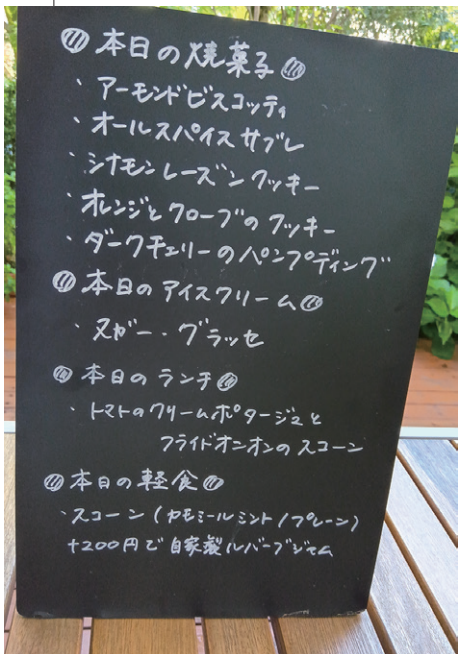 本日の焼菓子
・アーモンドビスコッティ
・オールスパイスサブレ
・シナモンレーズンクッキー
・オレンジとクローブのクッキー
・ダークチェリーのパンプディング
本日のアイスクリーム
・ヌガー・グラッセ
本日のランチ
・トマトのクリームポタージュと
フライドオニオンのスコーン
本日の軽食
・スコーン(カモミールミント/プレーン)
+200円で自家製ルバーブジャム